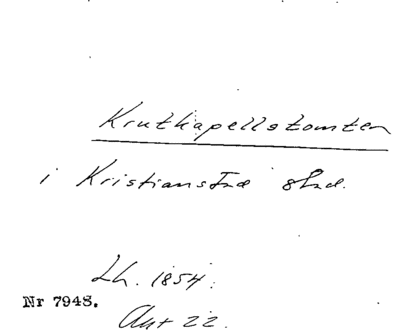 Krutkapellstomten
i Kristianstad
Lh. 1854.
Nr 7948.
Akt 22.